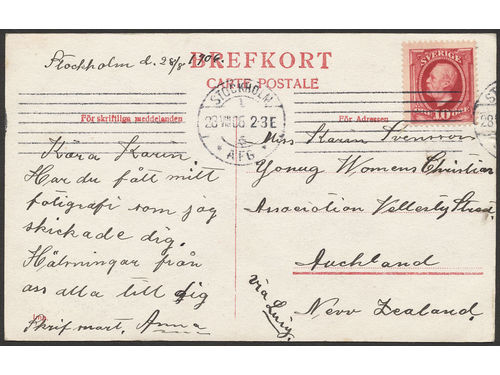 Stockholm d. 28/8 1906.
BREFKORT
CARTE POSTALE
För skriftliga meddelanden
För Adressen
SVERIGE
10
STOCKHOLM
1
28 VIII 06 2-3 E
6
* AFG *
Kära Karin.
Har du fått mitt
fotigrafi som jag
skickade dig.
Hälsningar från
oss alla till dig
Skrif snart. Anna
Miss Karin Svensson
Young Womens Christian
Association
Auckland
New Zealand.
via